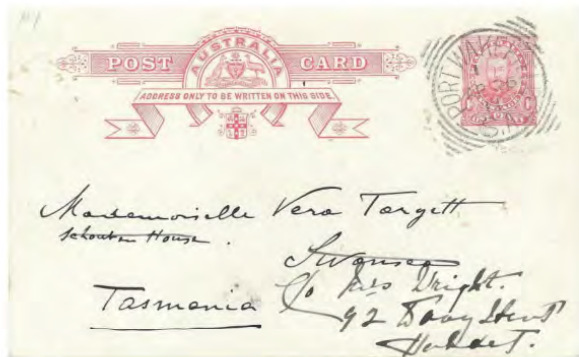 AUSTRALIA
POST CARD
ADDRESS ONLY TO BE WRITTEN ON THIS SIDE.
PORT WAKEF
S.A
Mademoiselle Vera Targett
Schouten House.
Swansea
Tasmania
c/o Mrs Wright.
92 Davy Street
Hobart.